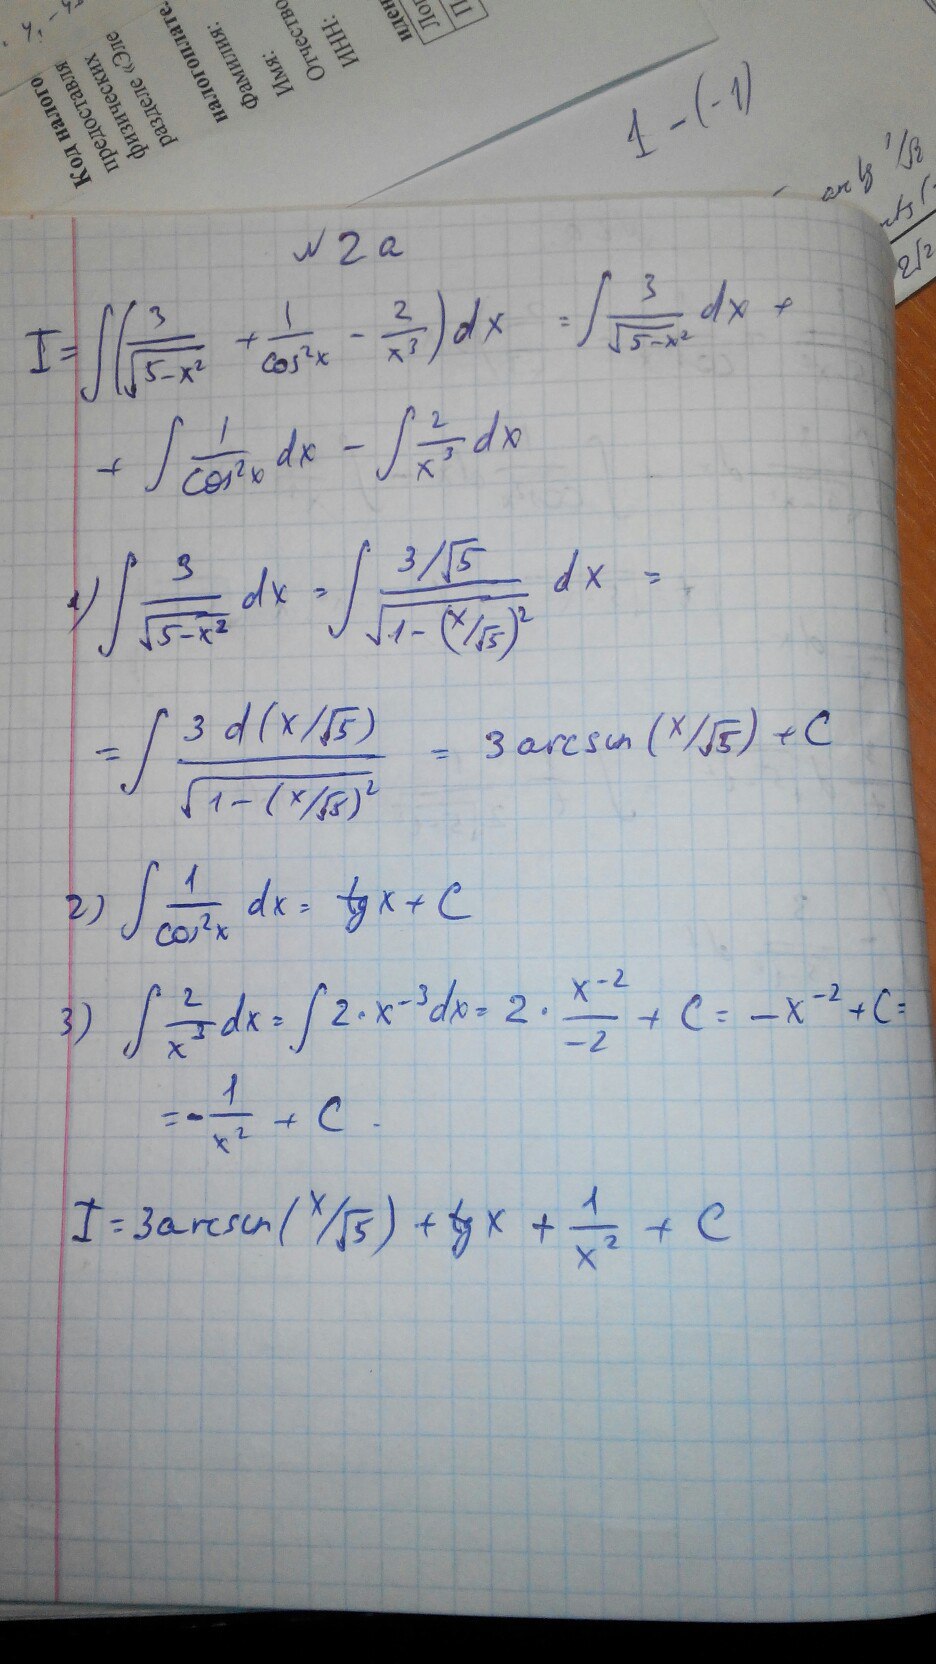 Код налого
предоставля
физических
разделе «Эле
налогоплате
Фамилия:
Имя:
Отчество
ИНН:
иден
Лог
П
1 - (-1)
arctg 1/√2
2√2
N 2 a
I = ∫(3/√(5-x²) + 1/cos²x - 2/x³) dx = ∫ 3/√(5-x²) dx +
+ ∫ 1/cos²x dx - ∫ 2/x³ dx
1) ∫ 3/√(5-x²) dx = ∫ (3/√5)/√(1-(x/√5)²) dx =
= ∫ 3 d(x/√5)/√(1-(x/√5)²) = 3 arcsin (x/√5) + C
2) ∫ 1/cos²x dx = tg x + C
3) ∫ 2/x³ dx = ∫ 2·x⁻³ dx = 2 · x⁻²/-2 + C = -x⁻² + C =
= - 1/x² + C .
I = 3 arcsin (x/√5) + tg x + 1/x² + C